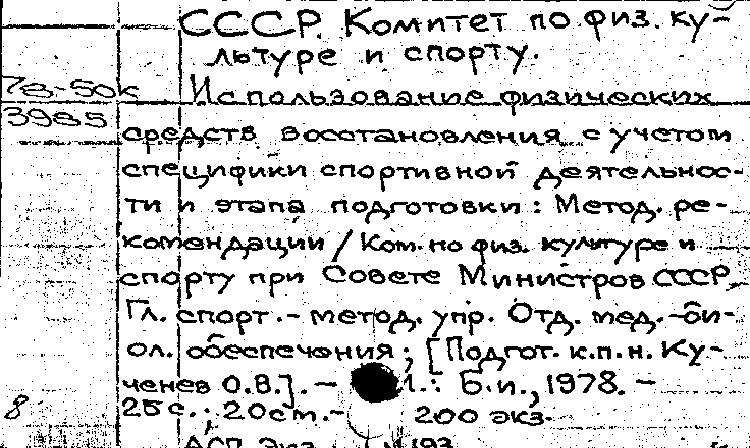 СССР. Комитет по физ. ку-
льтуре и спорту.
78-50к Использование физических
3985 средств восстановления с учетом
специфики спортивной деятельнос-
ти и этапа подготовки : Метод. ре-
комендации / Ком. по физ. культуре и
спорту при Совете Министров СССР,
Гл. спорт.- метод. упр. Отд. мед.-би-
ол. обеспечения ; [Подгот. к.п.н. Ку-
ченев О.В.]. - : Б.и., 1978. -
8 25с. ; 20см.- 200 экз.